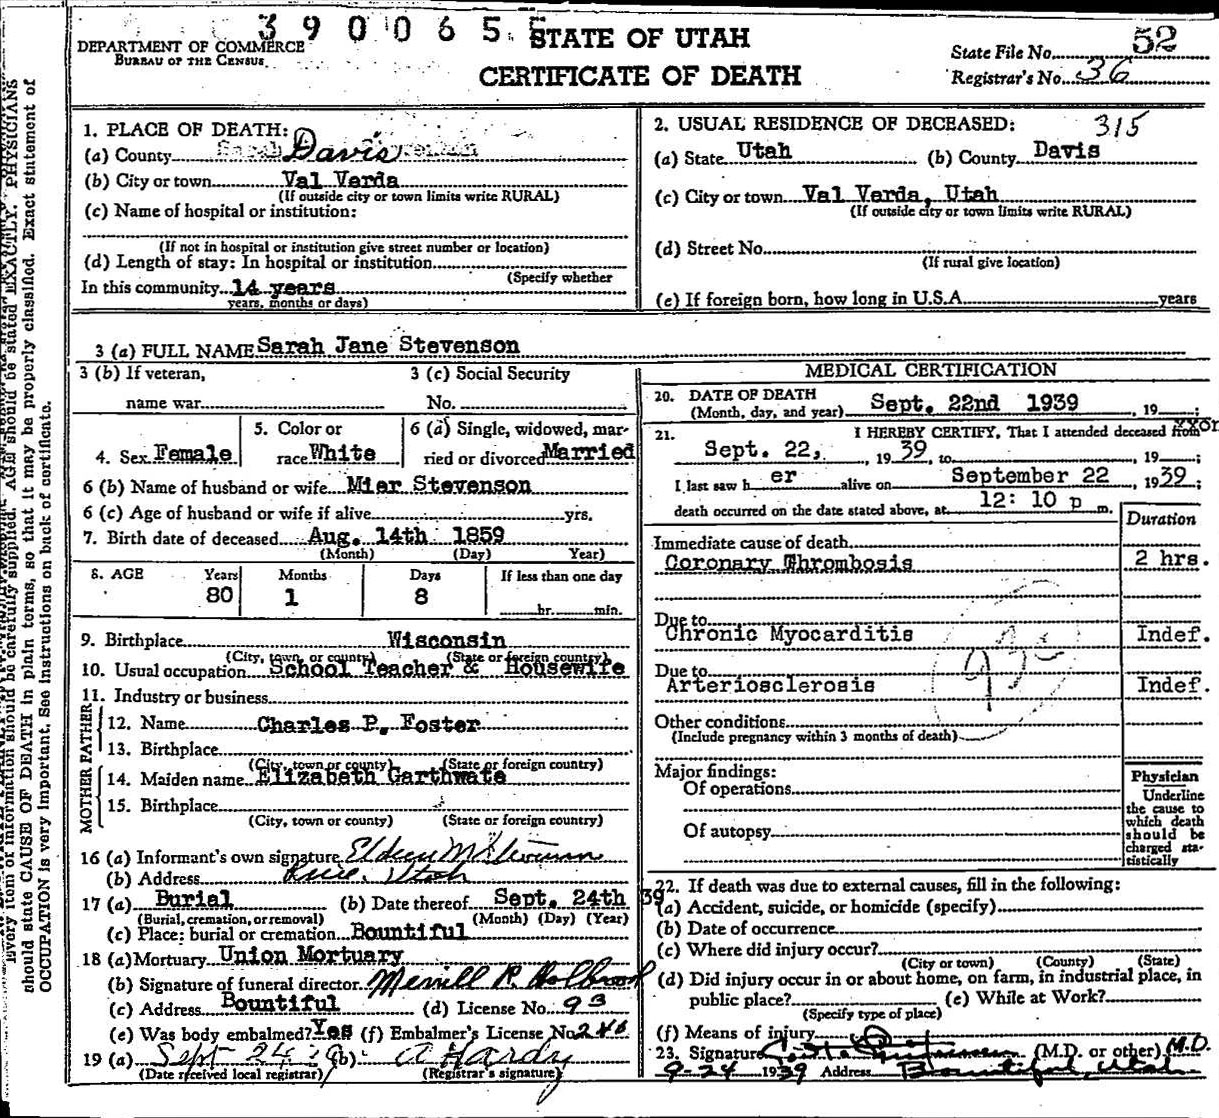 3900655
DEPARTMENT OF COMMERCE
BUREAU OF THE CENSUS
STATE OF UTAH
CERTIFICATE OF DEATH
State File No. 52
Registrar's No. 36
1. PLACE OF DEATH:
(a) County Davis
(b) City or town Val Verda
(If outside city or town limits write RURAL)
(c) Name of hospital or institution:
(If not in hospital or institution give street number or location)
(d) Length of stay: In hospital or institution
(Specify whether
In this community 14 years
years, months or days)
2. USUAL RESIDENCE OF DECEASED: 315
(a) State Utah (b) County Davis
(c) City or town Val Verda, Utah
(If outside city or town limits write RURAL)
(d) Street No.
(If rural give location)
(e) If foreign born, how long in U.S.A. years
3 (a) FULL NAME Sarah Jane Stevenson
3 (b) If veteran,
name war
3 (c) Social Security
No.
4. Sex Female
5. Color or
race White
6 (a) Single, widowed, mar-
ried or divorced Married
6 (b) Name of husband or wife Mier Stevenson
6 (c) Age of husband or wife if alive yrs.
7. Birth date of deceased Aug. 14th 1859
(Month) (Day) Year)
8. AGE Years Months Days If less than one day
80 1 8 hr. min.
9. Birthplace Wisconsin
(City, town, or county) (State or foreign country)
10. Usual occupation School Teacher & Housewife
11. Industry or business
FATHER
12. Name Charles P. Foster
13. Birthplace
(City, town or county) (State or foreign country)
MOTHER
14. Maiden name Elizabeth Garthwate
15. Birthplace
(City, town or county) (State or foreign country)
16 (a) Informant's own signature
(b) Address Utah
17 (a) Burial (b) Date thereof Sept. 24th 39
(Burial, cremation, or removal) (Month) (Day) (Year)
(c) Place: burial or cremation Bountiful
18 (a) Mortuary Union Mortuary
(b) Signature of funeral director Merrill R. Holbrook
(c) Address Bountiful (d) License No. 93
(e) Was body embalmed? Yes (f) Embalmer's License No. 246
19 (a) Sept 24 39 (b) A Hardy
(Date received local registrar) (Registrar's signature)
MEDICAL CERTIFICATION
20. DATE OF DEATH
(Month, day, and year) Sept. 22nd 1939, 19 ;
21. I HEREBY CERTIFY, That I attended deceased from xxon
Sept. 22, , 19 39, to , 19 ;
I last saw h er alive on September 22, 1939;
death occurred on the date stated above, at 12:10 p m.
Duration
Immediate cause of death
Coronary Thrombosis 2 hrs.
Due to
Chronic Myocarditis Indef.
Due to
Arteriosclerosis Indef.
Other conditions
(Include pregnancy within 3 months of death)
Major findings:
Of operations
Of autopsy
Physician
Underline
the cause to
which death
should be
charged sta-
tistically
22. If death was due to external causes, fill in the following:
(a) Accident, suicide, or homicide (specify)
(b) Date of occurrence
(c) Where did injury occur?
(City or town) (County) (State)
(d) Did injury occur in or about home, on farm, in industrial place, in
public place? (e) While at Work?
(Specify type of place)
(f) Means of injury
23. Signature (M.D. or other) M.D.
9-24 1939 Address Bountiful, Utah
Every item of information should be carefully supplied. AGE should be stated EXACTLY. PHYSICIANS
should state CAUSE OF DEATH in plain terms, so that it may be properly classified. Exact statement of
OCCUPATION is very important. See instructions on back of certificate.